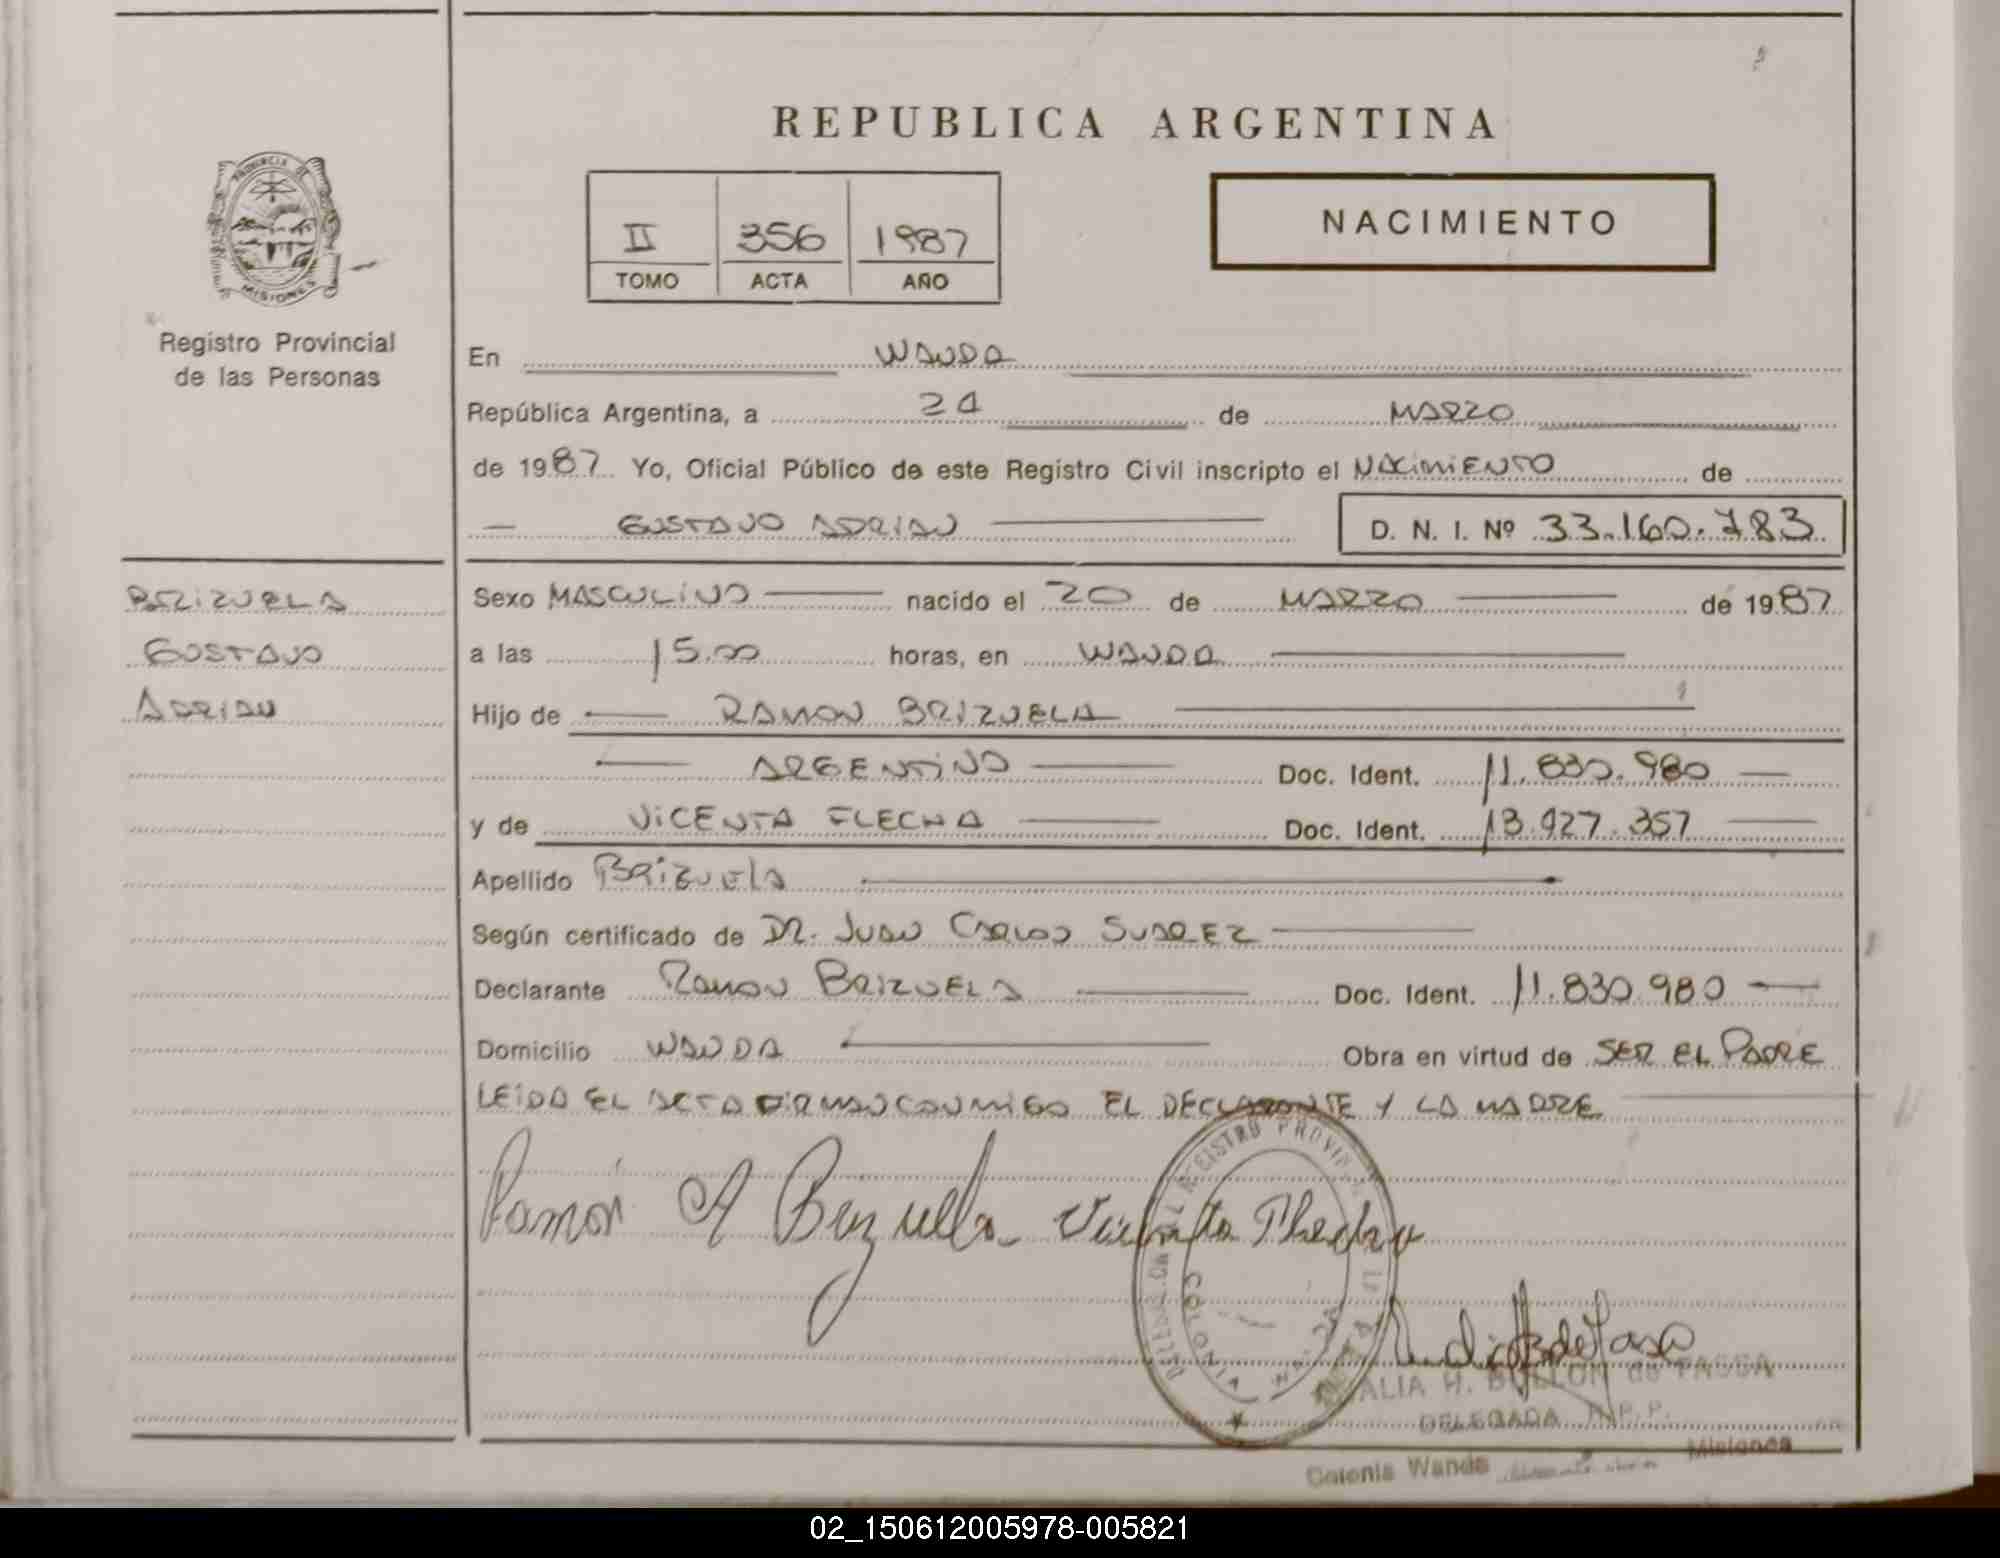 REPUBLICA ARGENTINA
PROVINCIA DE
MISIONES
II 356 1987
TOMO ACTA AÑO
NACIMIENTO
Registro Provincial
de las Personas
En WANDA
República Argentina, a 24 de MARZO
de 1987 Yo, Oficial Público de este Registro Civil inscripto el NACIMIENTO de
GUSTAVO ADRIAN D. N. I. Nº 33.160.783
BRIZUELA
GUSTAVO
ADRIAN
Sexo MASCULINO nacido el 20 de MARZO de 1987
a las 15.00 horas, en WANDA
Hijo de RAMON BRIZUELA
ARGENTINO Doc. Ident. 11.830.980
y de VICENTA FLECHA Doc. Ident. 13.927.357
Apellido BRIZUELA
Según certificado de DR. JUAN CARLOS SUAREZ
Declarante RAMON BRIZUELA Doc. Ident. 11.830.980
Domicilio WANDA Obra en virtud de SER EL PADRE
LEIDA EL ACTA FIRMAN CONMIGO EL DECLARANTE Y LA MADRE
Ramón A Brizuela Vicenta Flecha
REGISTRO PROVINCIAL
COLONIA WANDA
ALIA H. BULLON de FASSA
DELEGADA R.P.P.
Colonia Wanda Misiones
02_150612005978-005821